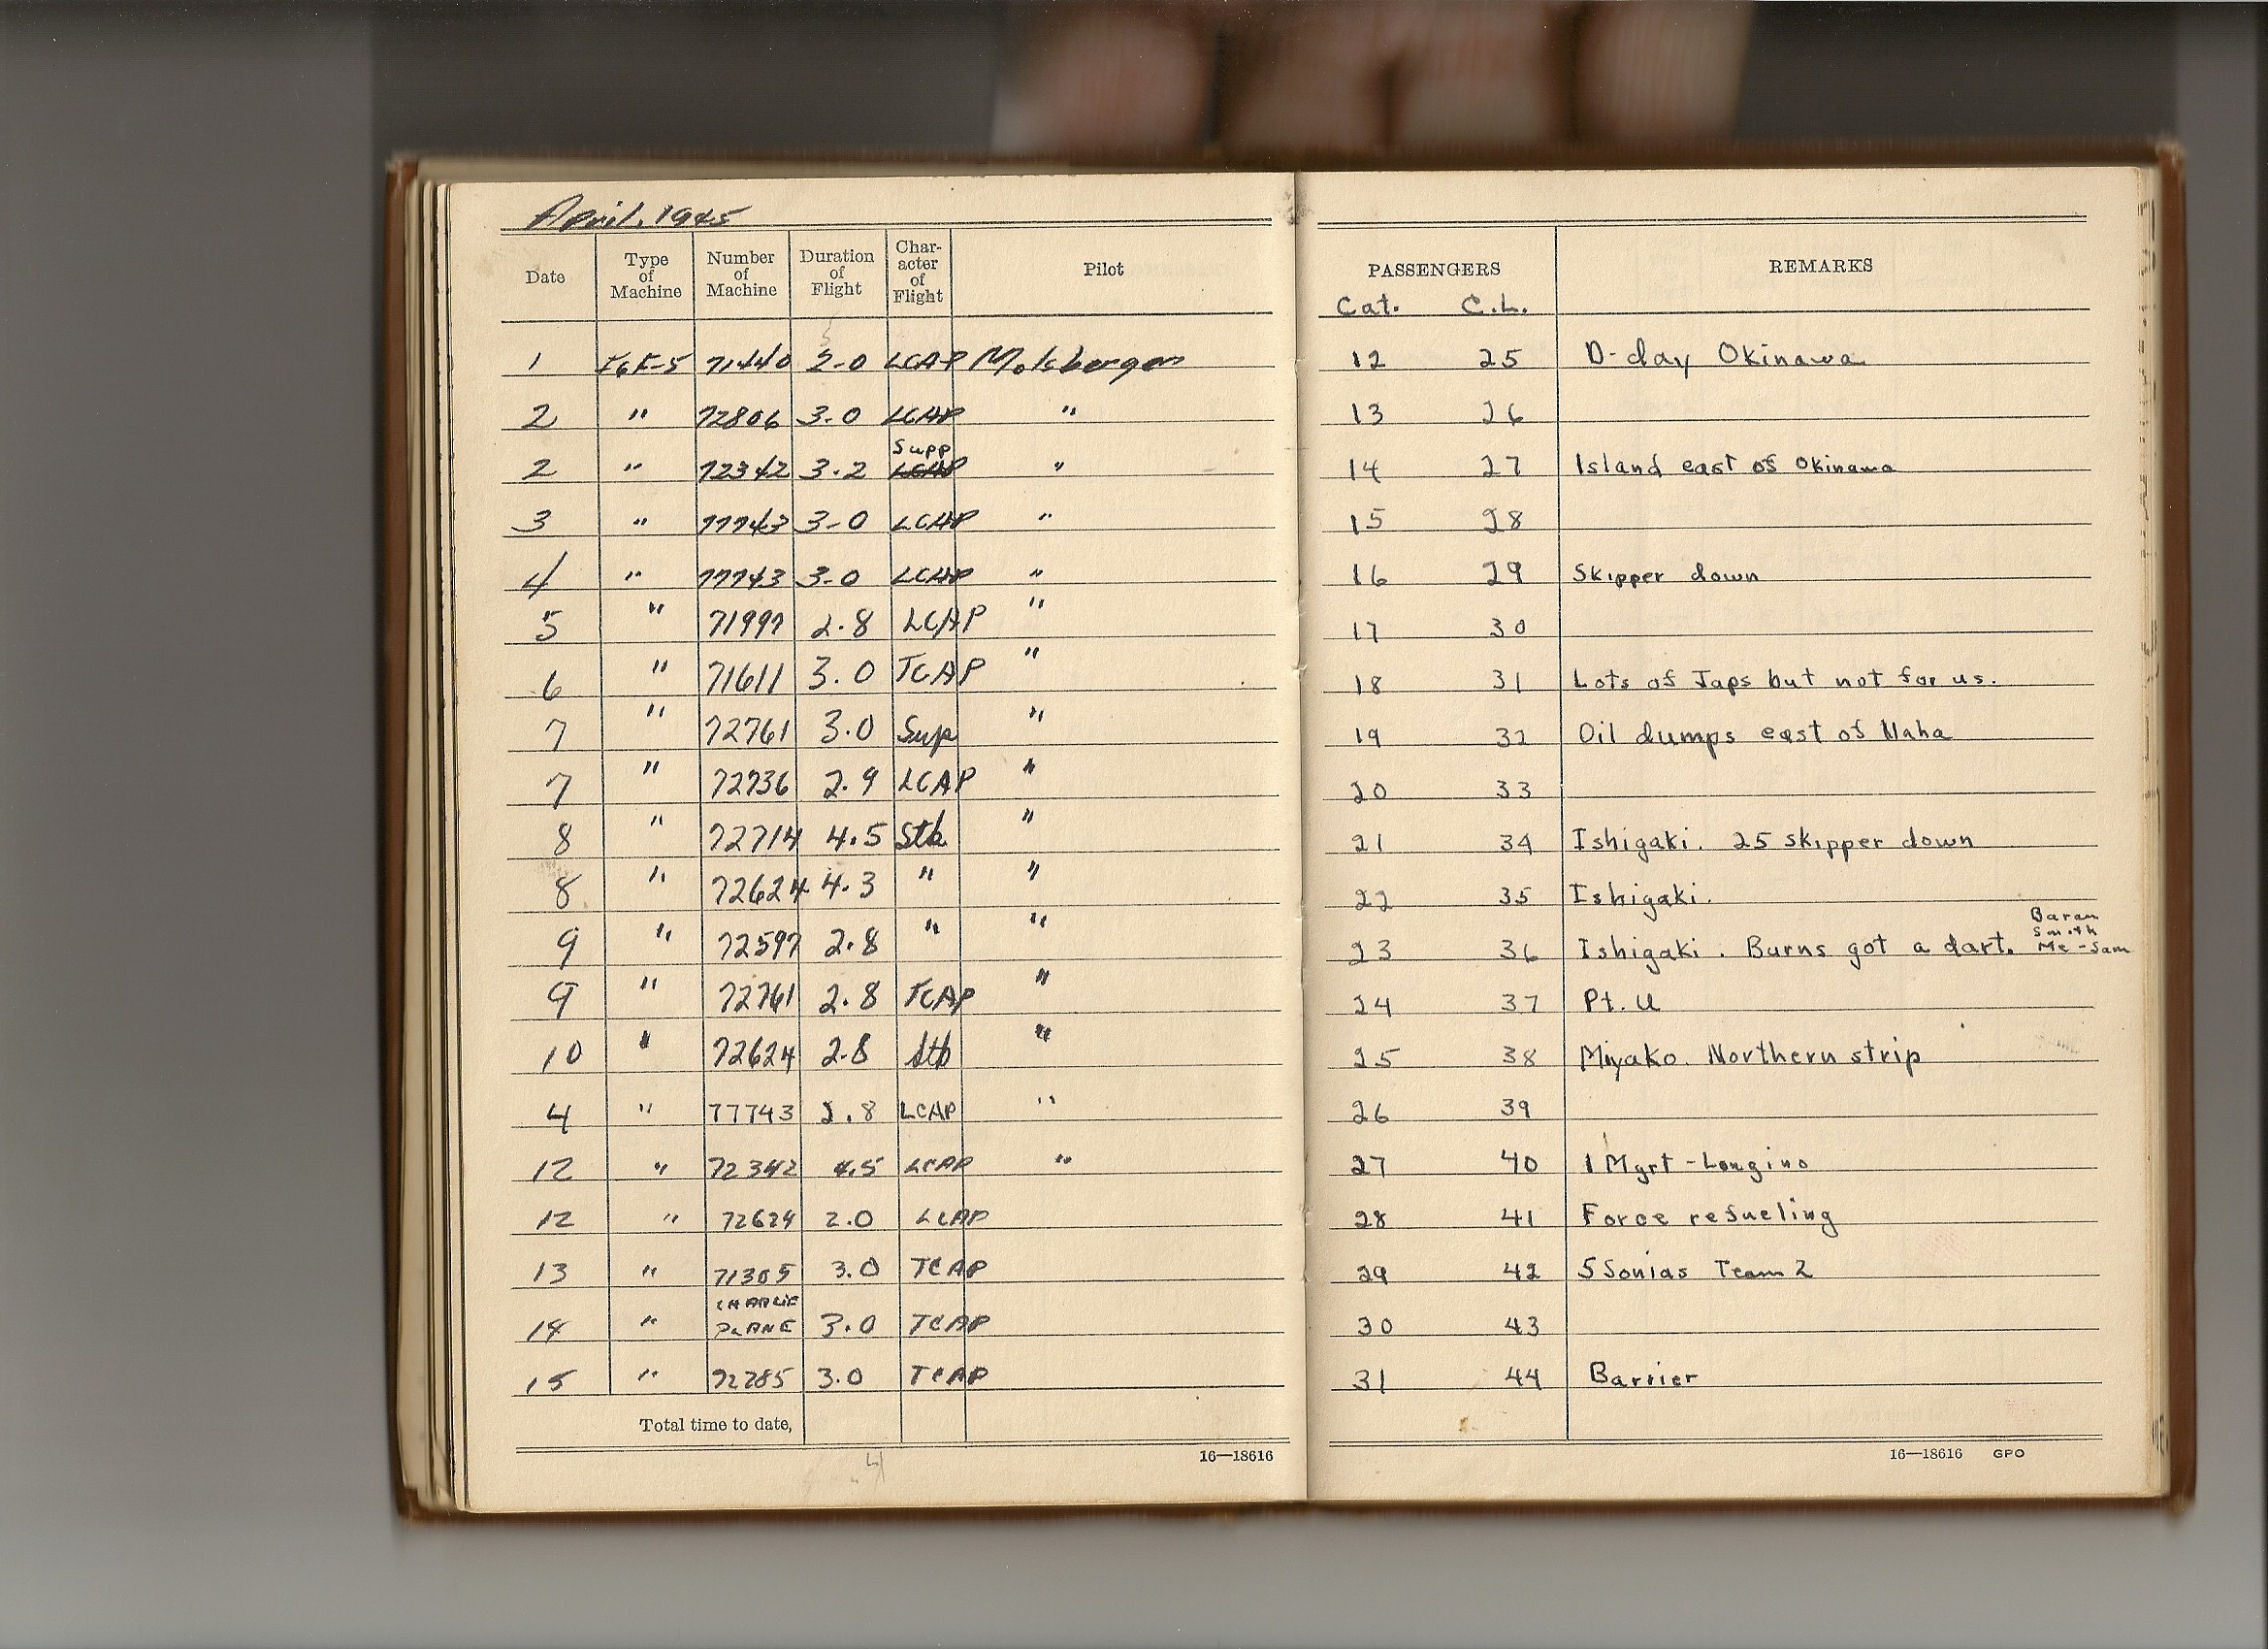 April, 1945
Date Type of Machine Number of Machine Duration of Flight Char-acter of Flight Pilot PASSENGERS REMARKS
Cat. C.L.
1 F6F-5 71440 2-0 LCAP Molsbergen 12 25 D-day Okinawa
2 " 72806 3-0 LCAP " 13 26
2 " 72342 3.2 Supp LCAP " 14 27 Island east of Okinawa
3 " 77743 3-0 LCAP " 15 28
4 " 77743 3-0 LCAP " 16 29 Skipper down
5 " 71997 2.8 LCAP " 17 30
6 " 71611 3.0 TCAP " 18 31 Lots of Japs but not for us.
7 " 72761 3.0 Sup " 19 32 Oil dumps east of Naha
7 " 72736 2.9 LCAP " 20 33
8 " 72714 4.5 Stk " 21 34 Ishigaki. 25 skipper down
8 " 72624 4.3 " " 22 35 Ishigaki.
9 " 72597 2.8 " " 23 36 Ishigaki. Burns got a dart. Baran Smith Me-Sam
9 " 72761 2.8 TCAP " 24 37 Pt. U
10 " 72624 2-8 Stk " 25 38 Miyako. Northern strip
4 " 77743 2.8 LCAP " 26 39
12 " 72342 4.5 LCAP " 27 40 1 Myrt - Longino
12 " 72624 2.0 LCAP 28 41 Force refueling
13 " 71305 3.0 TCAP 29 42 5 Sonias Team 2
14 " CHARLIE PLANE 3.0 TCAP 30 43
15 " 72785 3.0 TCAP 31 44 Barrier
Total time to date,
16—18616 16—18616 GPO